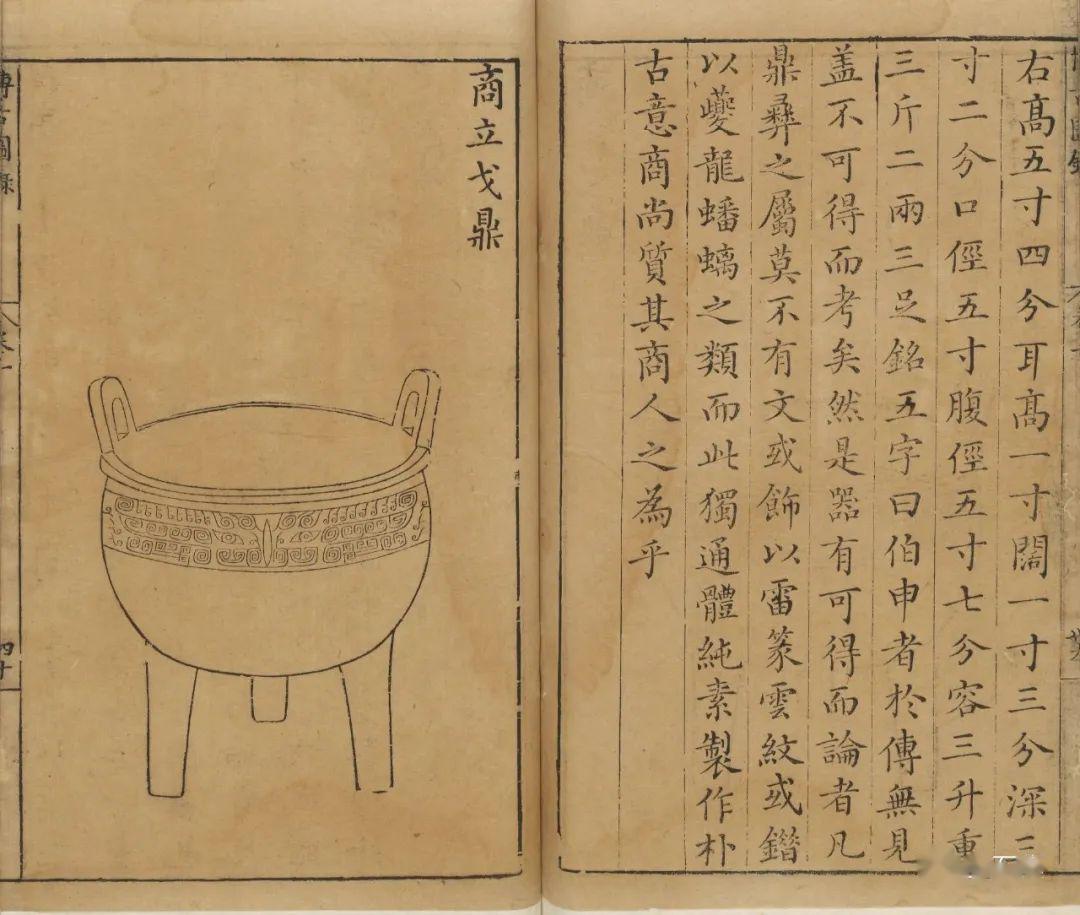 右髙五寸四分耳髙一寸闊一寸三分深三
寸二分口徑五寸腹徑五寸七分容三升重
三斤二兩三足銘五字曰伯申者於傳無見
盖不可得而考矣然是器有可得而論者凡
鼎彝之屬莫不有文或飾以雷篆雲紋或鍇
以夔龍蟠螭之類而此獨通體純素製作朴
古意商尚質其商人之為乎
商立戈鼎
博古圖錄
四十